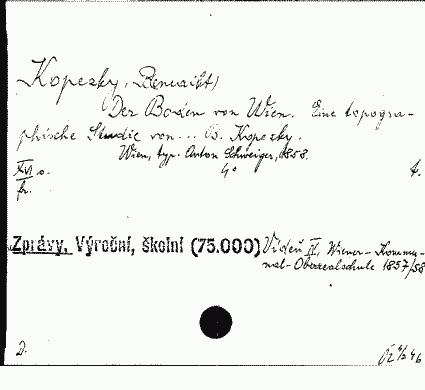 Kopezky, Benedikt
Der Boden von Wien. Eine topogra-
phische Studie von ... B. Kopezky.
Wien, typ. Anton Schweiger, 1858.
4°
fr.
Zprávy. Výroční, školní (75.000) Vídeň IV, Wiener-Kommu-
nal-Oberrealschule 1857/58
D.